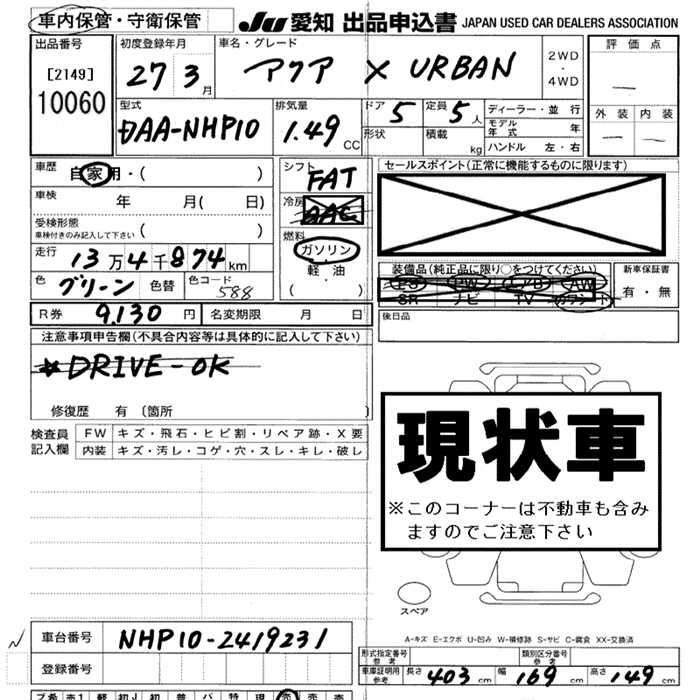 車内保管・守衛保管
JU 愛知 出品申込書 JAPAN USED CAR DEALERS ASSOCIATION
出品番号
[2149]
10060
初度登録年月
27 3月
車名・グレード
アクア X URBAN
2WD・4WD
評価点
—
外装 内装
— —
型式
DAA-NHP10
排気量
1.49 CC
ドア 5
形状
定員 5人
積載 kg
ディーラー・並行
モデル年式 年
ハンドル 左・右
車歴 自家用・( )
車検 年 月( 日)
受検形態
車検付きのみ記入して下さい ( )
走行
13万4千874km
色 グリーン 色替 色コード 588
シフト FAT
冷房 AAC
燃料
ガソリン
軽油
( ・ )
セールスポイント(正常に機能するものに限ります)
装備品(純正品に限り○をつけてください)
PS PW エアB AW
SR ナビ TV カワシート
新車保証書
有・無
R券 9,130円 名変期限 月 日
後日品
注意事項申告欄(不具合内容等は具体的に記入して下さい)
*DRIVE-OK
修復歴 有〔箇所 〕
検査員記入欄
FW キズ・飛石・ヒビ割・リペア跡・X要
内装 キズ・汚レ・コゲ・穴・スレ・キレ・破レ
現状車
※このコーナーは不動車も含み
ますのでご注意下さい
スペア
A-キズ E-エクボ U-凹み W-補修跡 S-サビ C-腐食 XX-交換済
車台番号 NHP10-2419231
登録番号
形式指定番号 参考
類別区分番号 参考
車庫証明用参考 長さ 403cm 幅 169cm 高さ 149cm